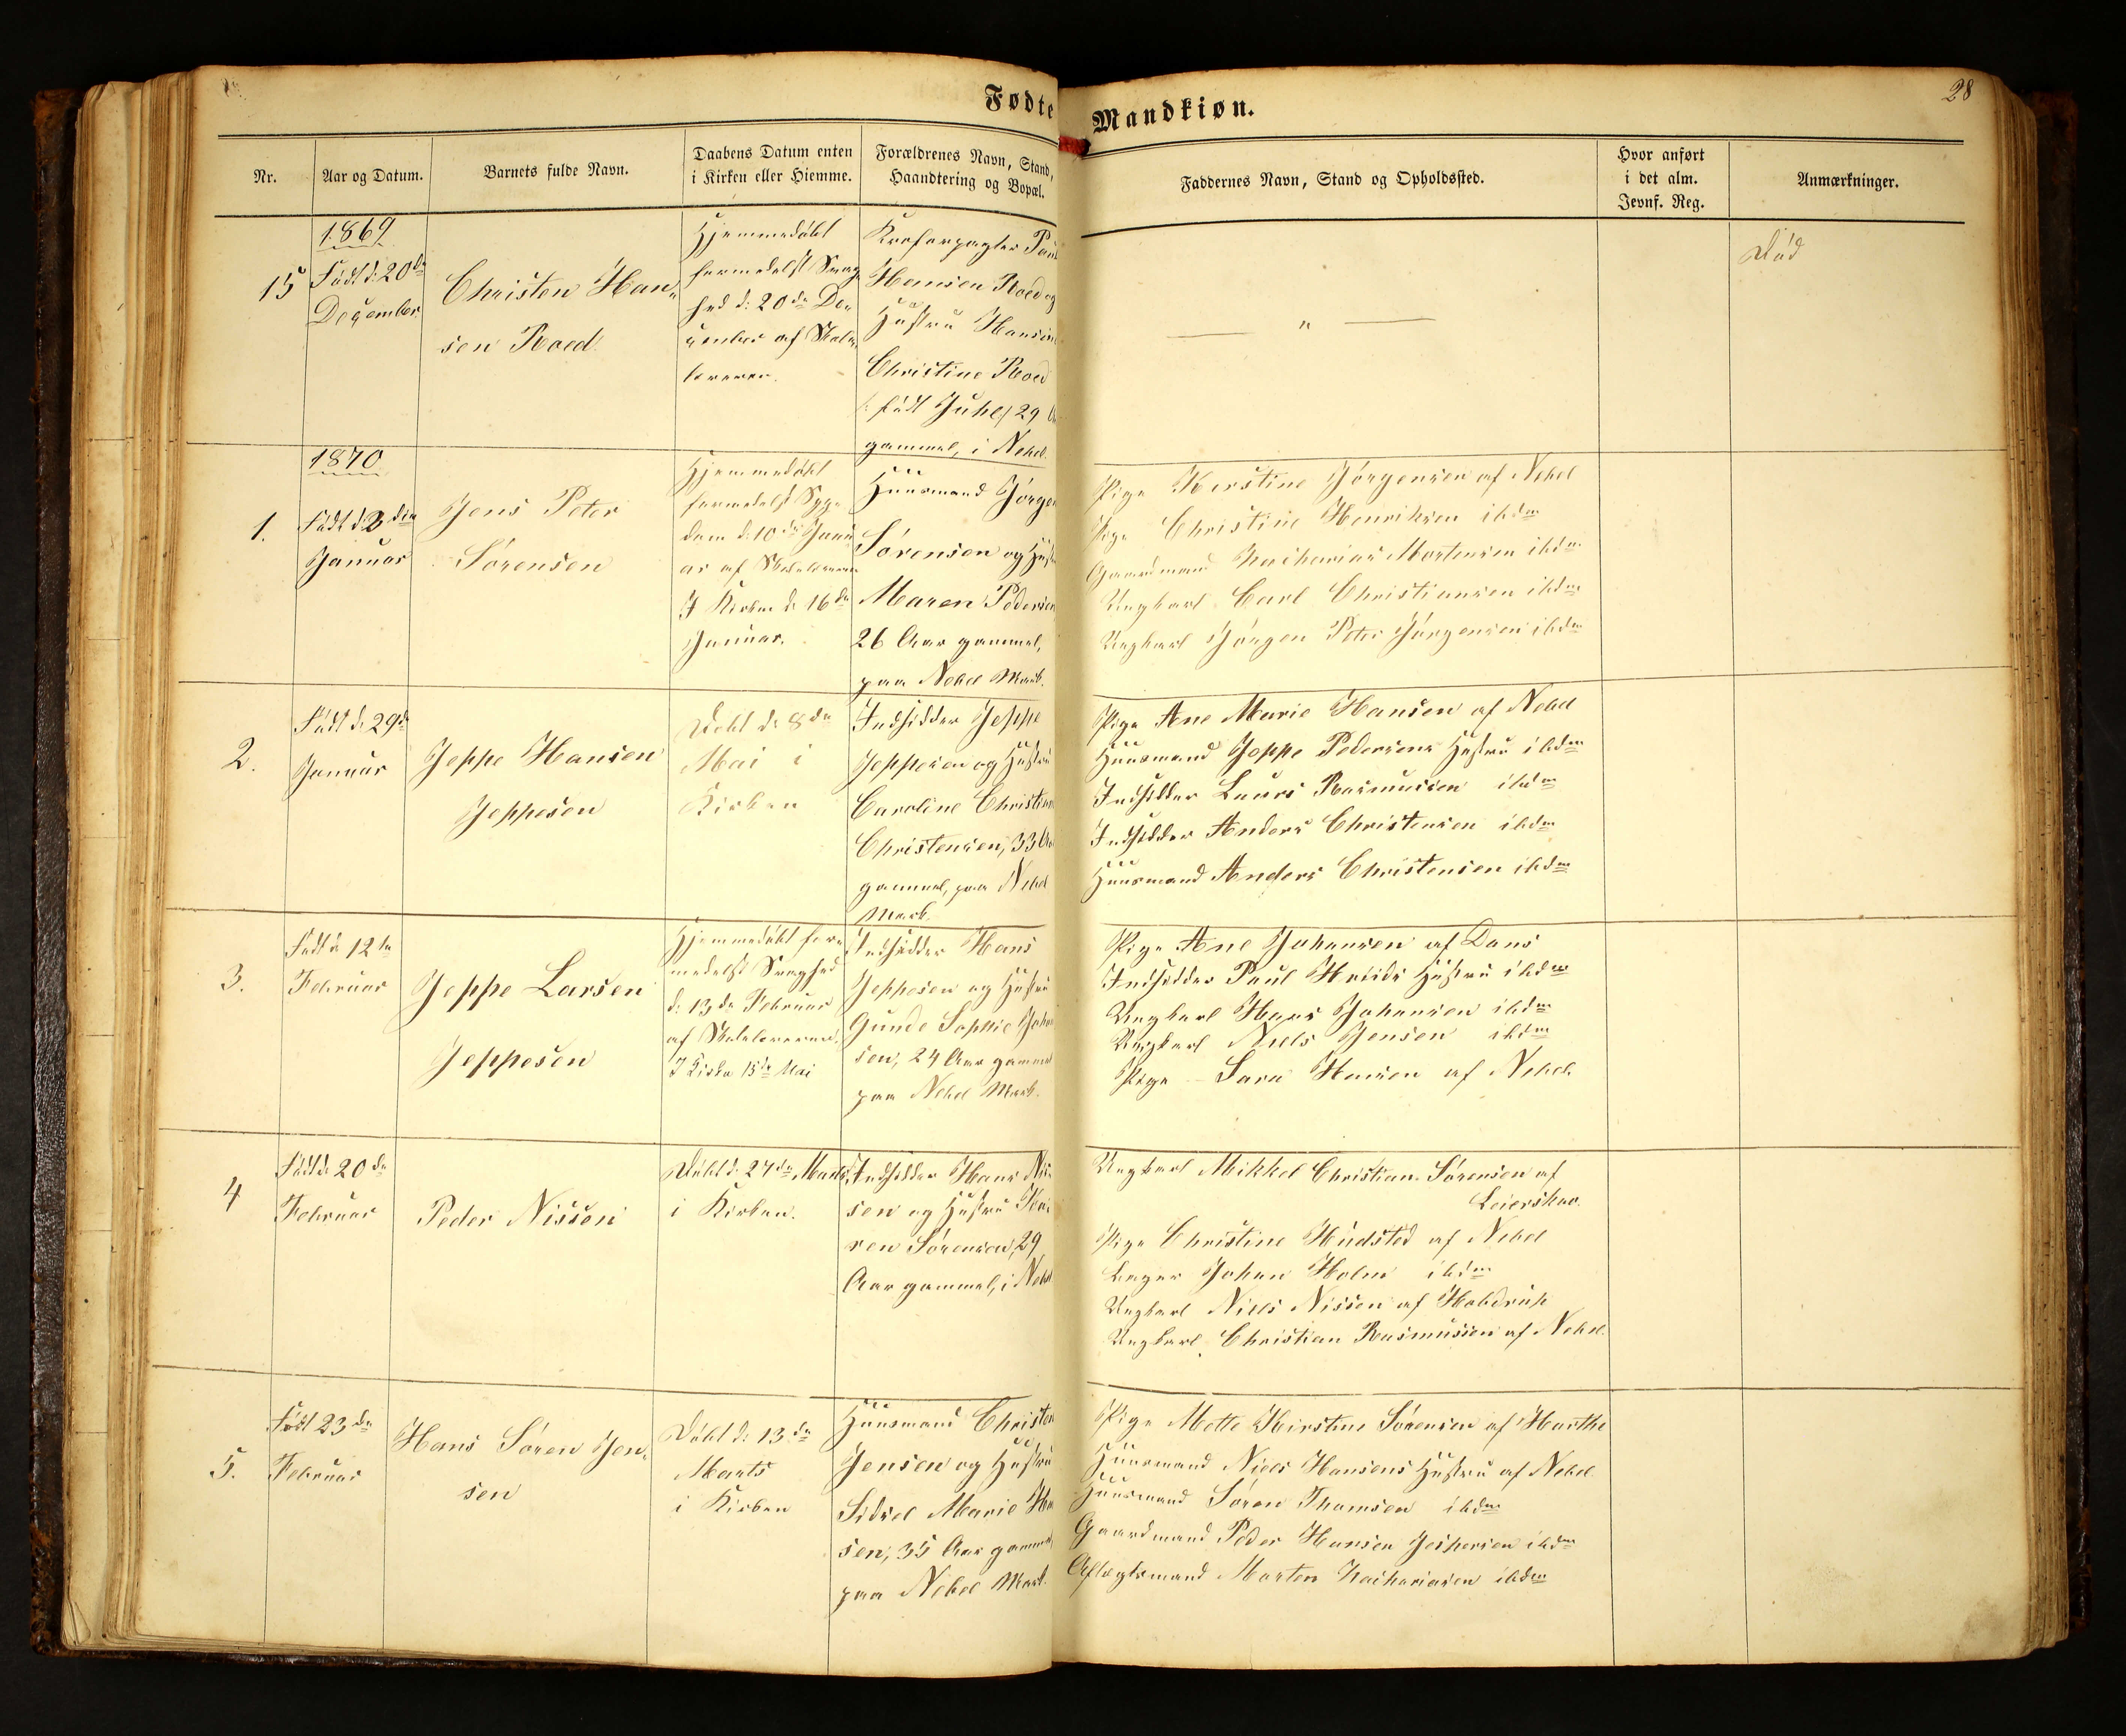 Fødte
Mandkiøn.
28
Nr.
Aar og Datum.
Barnets fulde Navn.
Daabens Datum enten
i Kirken eller Hiemme.
Forældrenes Navn, Stand,
Haandtering og Bopæl.
Faddernes Navn, Stand og Opholdssted.
Hvor anført
i det alm.
Jevnf. Reg.
Anmærkninger.
15
1869
Født d: 20de
December
Christen Han„
sen Roed
Hjemmedøbt
formedelst Svag„
hed d: 20de De„
cember af Skole„
læreren.
Kroforpagter
Hansen Roed og
Hustru
Christine Roed
født Juhl, 29
gammel, i Nebel.
"
Død
1870
1.
Født d: 3die
Januar
Jens Peter
Sørensen
Hjemmedøbt
formedelst Syg„
dom d: 10de Janu
ar af Skolelæreren
I Kirken d: 16de
Januar.
Huusmand Jørgen
Sørensen og
Maren Pedersen
26 Aar gammel,
paa Nebel Mark.
Pige Kirstine Jørgensen af Nebel
Pige Christine Henriksen ibdm
Gaardmand Zacharias Mortensen ibdm
Ungkarl Carl Christiansen ibdm
Ungkarl Jørgen Peter Jørgensen ibdm
2.
Født d: 29de
Januar
Jeppe Hansen
Jeppesen
Døbt d: 8de
Mai i
Kirken
Indsidder Jeppe
Jeppesen og Hustru
Caroline
Christensen, 33
gammel, paa Nebel
Mark.
Pige Ane Marie Hansen af Nebel
Huusmand Jeppe Pedersens Hustru ibdm
Indsidder Laurs Rasmussen ibdm
Indsidder Anders Christensen ibdm
Huusmand Anders Christensen ibdm
3.
Født d: 12te
Februar
Jeppe Larsen
Jeppesen
Hjemmedøbt for„
medelst Svaghed
d: 13de Februar
af Skolelæreren.
I Kirken 15de Mai
Indsidder Hans
Jeppesen og Hustru
Gunde Sophie
sen, 24 Aar gammel
paa Nebel Mark.
Pige Ane Johansen af Dons
Indsidder Paul Hustru ibdm
Ungkarl Hans Johansen ibdm
Ungkarl Niels Jensen ibdm
Pige Sara Hansen af Nebel.
4
Født d: 20de
Februar
Peder Nissen
Døbt d: 27de Marts
i Kirken.
Indsidder Hans Nis„
sen og Hustru
ren Sørensen, 29
Aar gammel, i Nebel
Ungkarl Mikkel Christian Sørensen af
Leierskov.
Pige Christine Hudsted af Nebel
Johan Holm ibdm
Ungkarl Niels Nissen af
Ungkarl Christian Rasmussen af Nebel.
5.
Født 23de
Februar
Hans Søren Jen„
sen
Døbt d: 13de
Marts
i Kirken
Huusmand Christen
Jensen og Hustru
Sidsel Marie
sen, 35 Aar gammel,
paa Nebel Mark.
Pige Mette Kirstine Sørensen af Harthe
Huusmand Niels Hansens Hustru af Nebel
Huusmand Søren Thomsen ibdm
Gaardmand Peder Hansen Jespersen ibdm
Aftægtsmand Morten Zachariasen ibdm